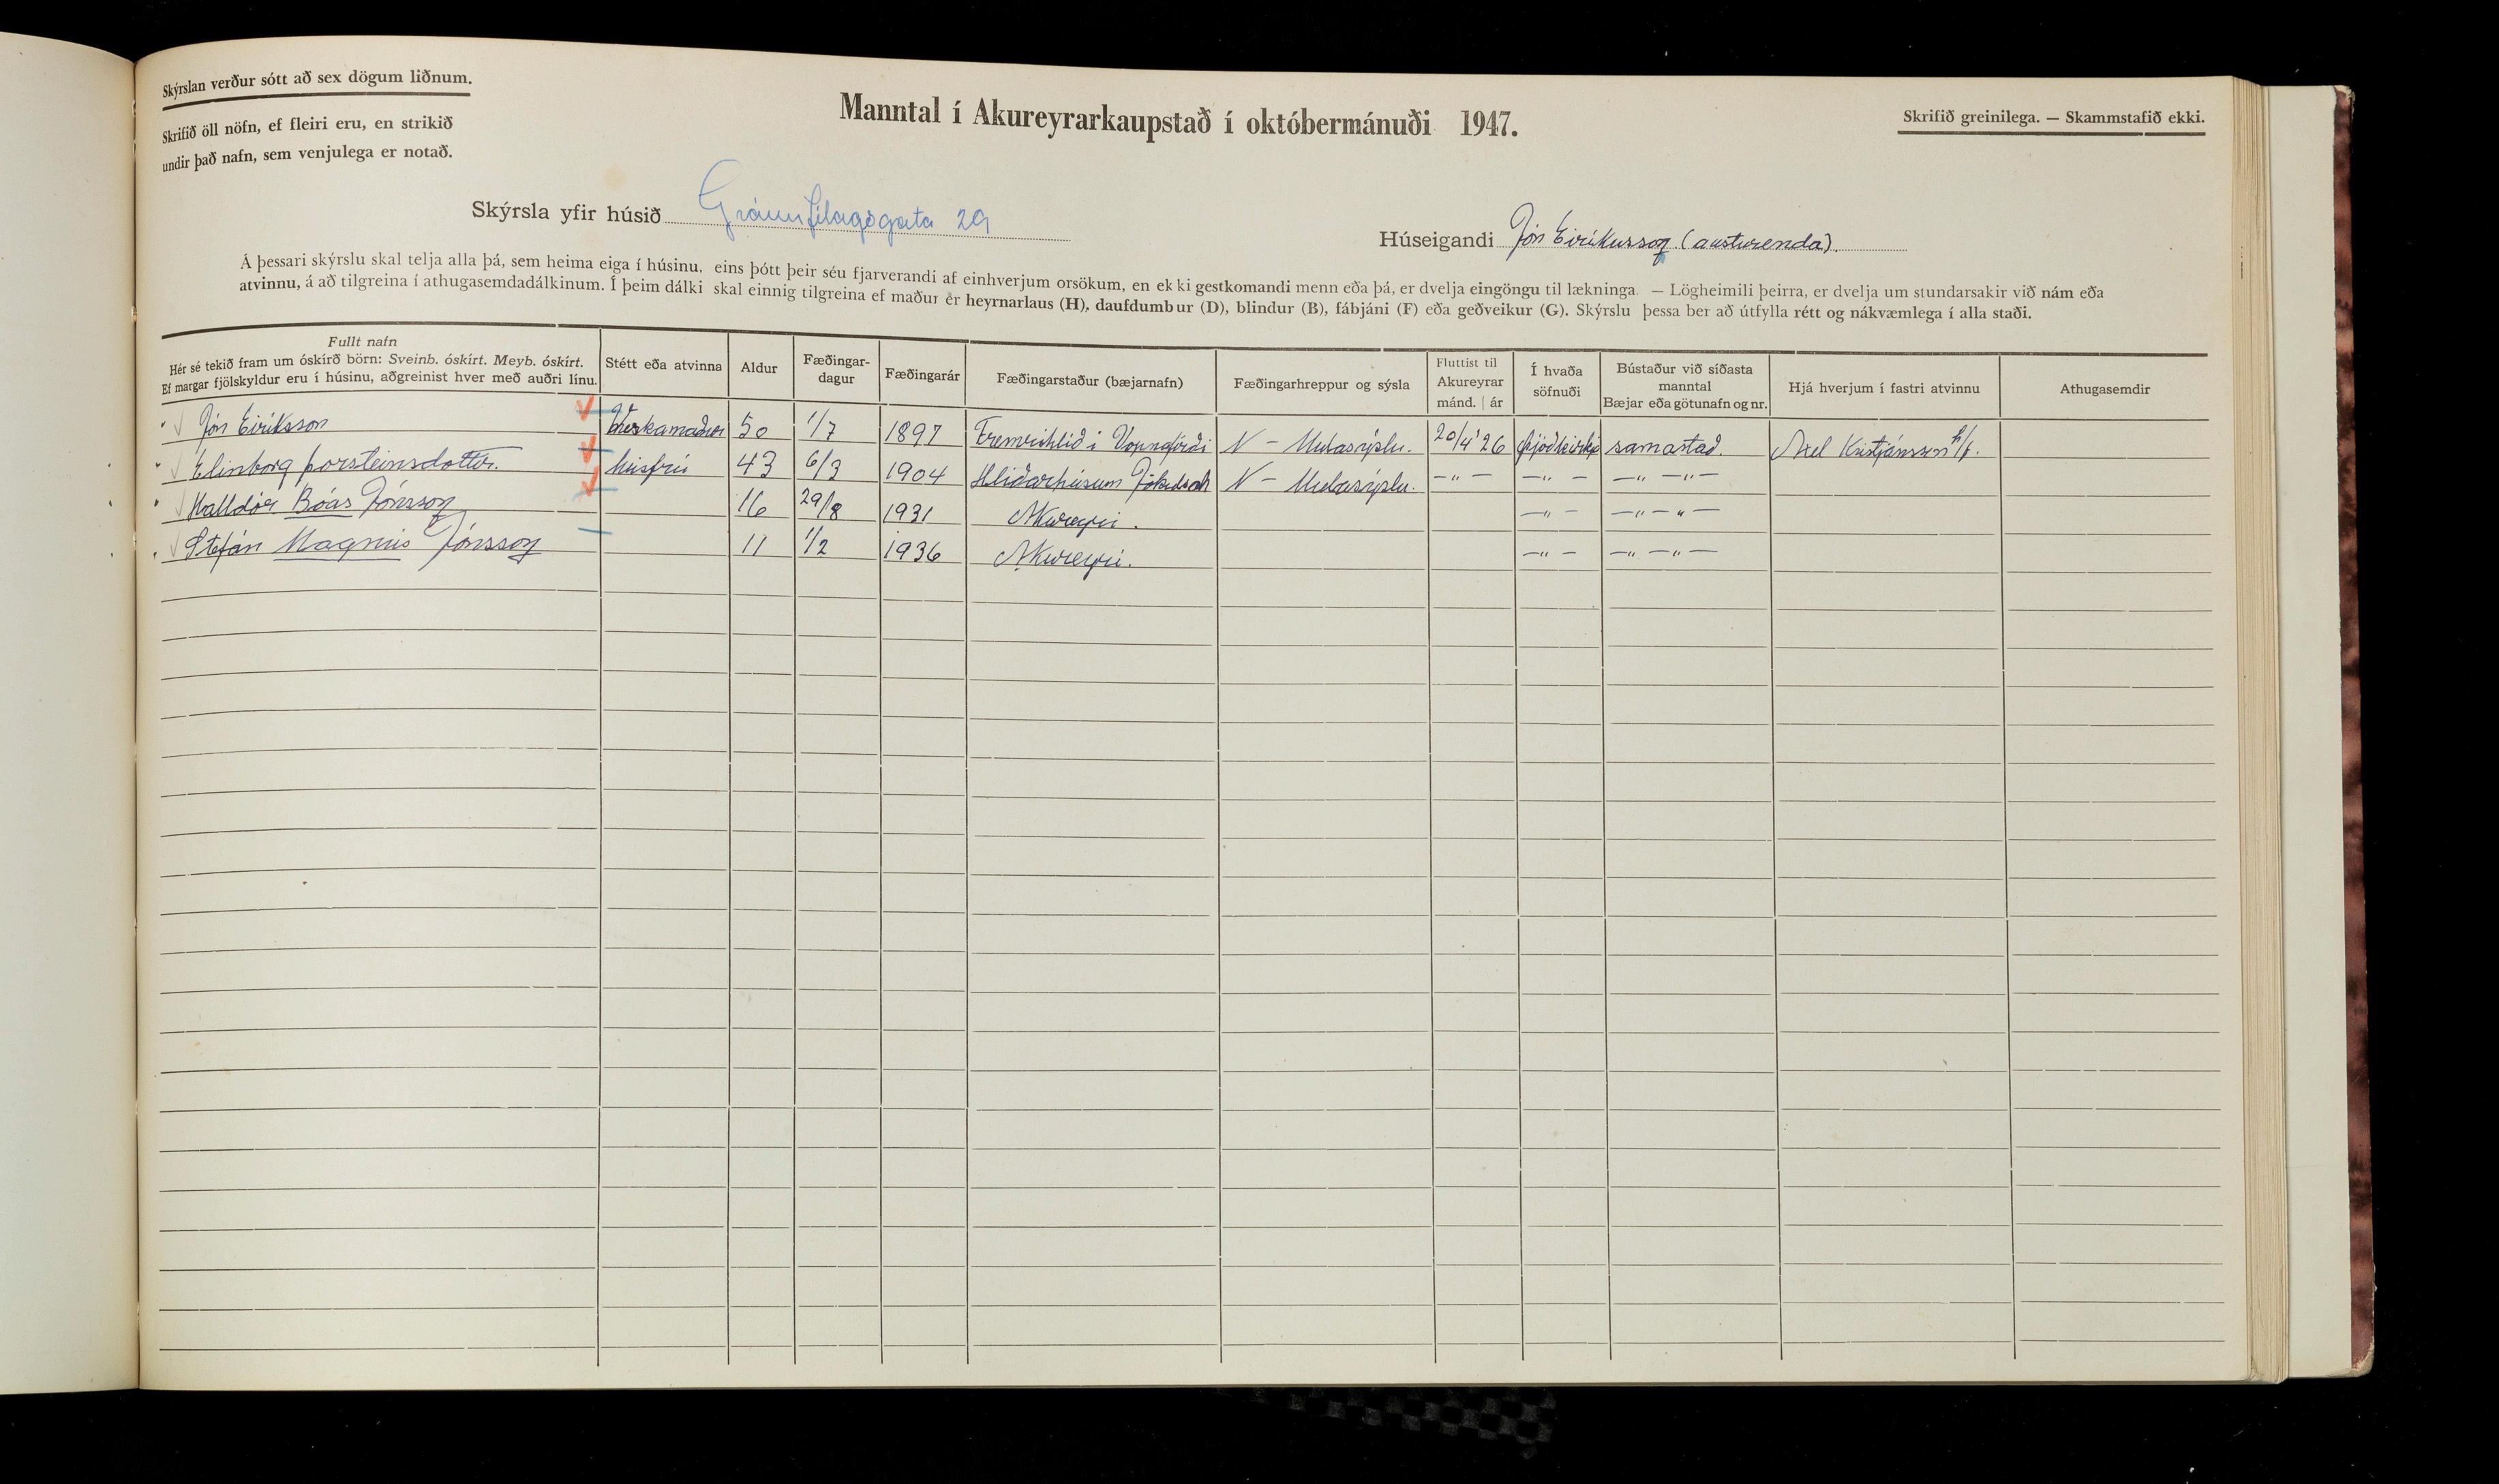 Skýrslan verður sótt að sex dögum liðnum.
Skrifið öll nöfn, ef fleiri eru, en strikið
undir það nafn, sem venjulega er notað.
Manntal í Akureyrarkaupstað í októbermánuði 1947.
Skrifið greinilega. — Skammstafið ekki.
Skýrsla yfir húsið Gránufélagsgata 29
Húseigandi Jón Eiríkursson (austurenda).
Á þessari skýrslu skal telja alla þá, sem heima eiga í húsinu, eins þótt þeir séu fjarverandi af einhverjum orsökum, en ekki gestkomandi menn eða þá, er dvelja eingöngu til lækninga. — Lögheimili þeirra, er dvelja um stundarsakir við nám eða
atvinnu, á að tilgreina í athugasemdadálkinum. Í þeim dálki skal einnig tilgreina ef maður er heyrnarlaus (H), daufdumbur (D), blindur (B), fábjáni (F) eða geðveikur (G). Skýrslu þessa ber að útfylla rétt og nákvæmlega í alla staði.
Fullt nafn
Hér sé tekið fram um óskírð börn: Sveinb. óskírt. Meyb. óskírt.
Ef margar fjölskyldur eru í húsinu, aðgreinist hver með auðri línu.
Stétt eða atvinna
Aldur
Fæðingar-
dagur
Fæðingarár
Fæðingarstaður (bæjarnafn)
Fæðingarhreppur og sýsla
Fluttist til
Akureyrar
mánd. | ár
Í hvaða
söfnuði
Bústaður við síðasta
manntal
Bæjar eða götunafn og nr.
Hjá hverjum í fastri atvinnu
Athugasemdir
Jón Eiríksson Verkamaður 50 1/7 1897 Fremrihlíð í Vopnafirði N - Mulasýslu. 20/4 '26 þjóðkirkj samastað. Axel Kristjánsson h/f.
Elinborg þorsteinsdottir. húsfrú 43 6/3 1904 Hliðarhúsum N - Mulasýslu. —"— —"— —"— —"—
Halldór Bóas Jónsson 16 29/8 1931 Akureyri. —"— —"—"—
Stefán Magnús Jónsson 11 1/2 1936 Akureyri. —"— —"—"—